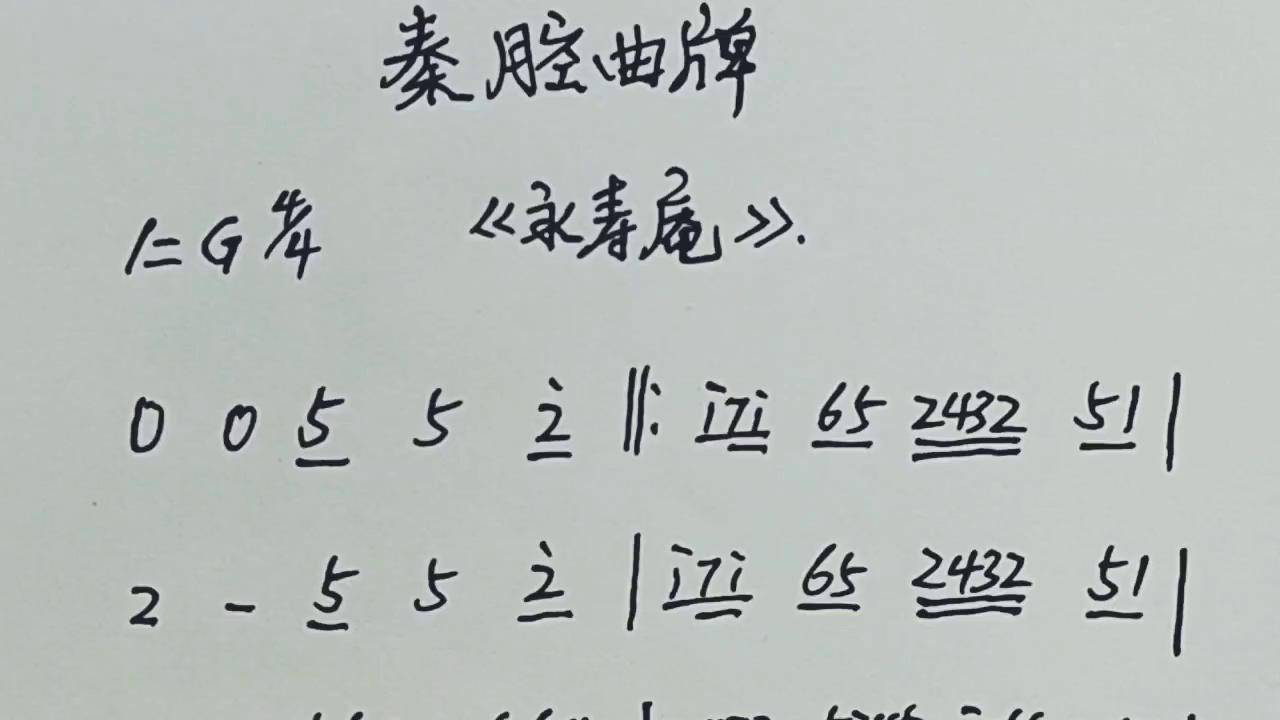 秦腔曲牌
1=G 4/4 《永寿庵》.
0 0 5 5 2̇ ‖: i̇7i̇ 65 2432 51 |
2 - 5 5 2̇ | i̇7i̇ 65 2432 51 |